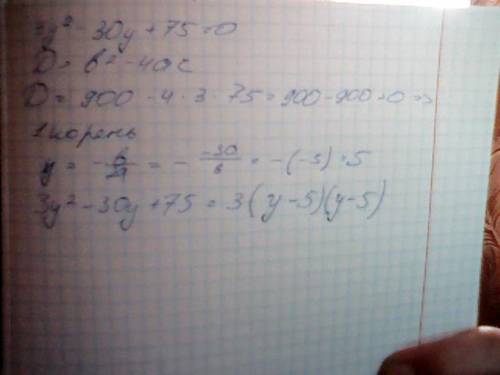 3y² - 30y + 75 = 0
D = b² - 4ac
D = 900 - 4 · 3 · 75 = 900 - 900 = 0 =>
1 корень
y = - b/2a = - -30/6 = -(-5) = 5
3y² - 30y + 75 = 3(y-5)(y-5)